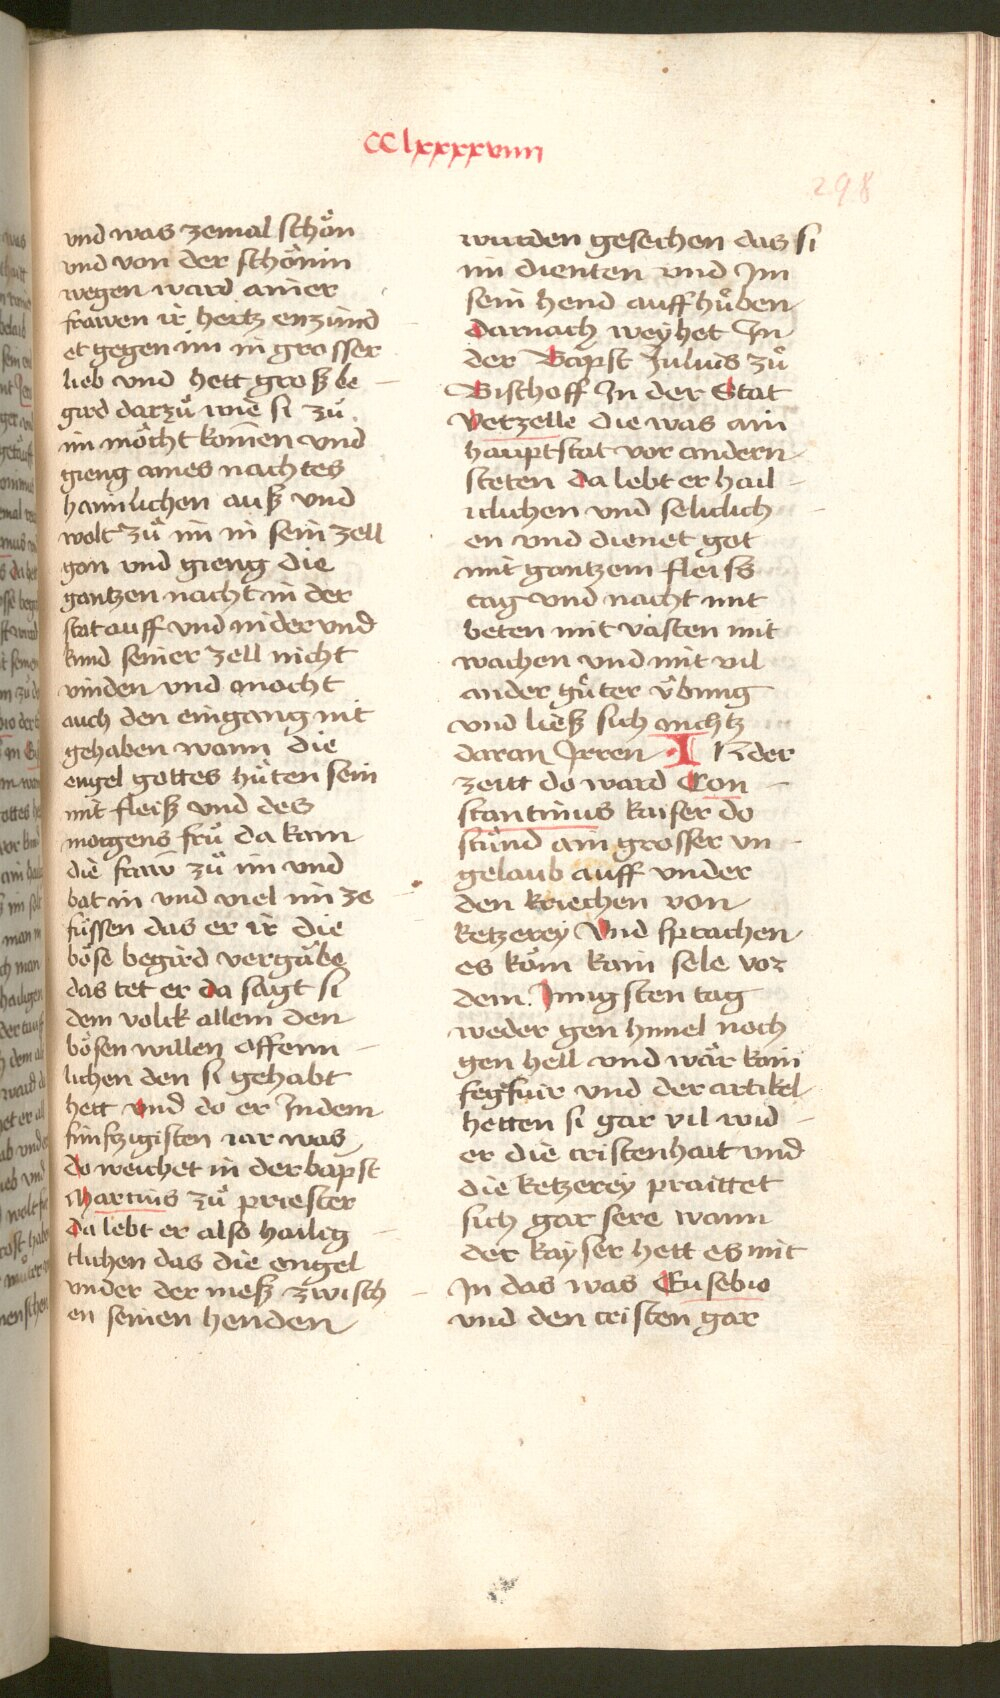 CClxxxxviiii
298
vnd was zemal schoͤn
vnd von der schoͤnin
wegen ward ainer
frawen ir hertz enzünd
et gegen im in grosser
lieb vnd hett groß be
gird darzuͦ wie si zuͦ
im moͤcht komen vnd
gieng aines nachtes
haimlichen auß vnd
wolt zuͦ im in sein zell
gan vnd gieng die
gantzen nacht in der
stat auff vnd nider vnd
kund seiner zell nicht
vinden vnd mocht
auch den eingang nit
gehaben wann die
engel gottes huͤten sein
mit fleiß vnd des
morgens fruͦ da kam
die fraw zuͦ im vnd
bat in vnd viel im ze
fuͤssen das er ir die
boͤse begird vergaͤbe
das tet er da sagt si
dem volck allem den
boͤsen willen offenn
lichen den si gehabt
hett vnd do er Indem
fünfzigisten iar was
do weichet in der bapst
Marcius zuͦ priester
da lebt er also hailig
clichen das die engel
vnder der meß zwisch
en seinen henden
wurden gesechen das si
im dienten vnd Im
sein hend auff huͤben
darnach weyhet In
der Bapst Julius zuͦ
Bischoff In der Stat
Vetzelle die was ain
hauptstat vor andern
steten da lebt er hail
iclichen vnd seliclich
en vnd dienet got
mit gantzem fleiss
tag vnd nacht mit
beten mit vasten mit
wachen vnd mit vil
ander guͤter vͤbung
vnd ließ sich nichtz
daran Irren IN der
zeitt do ward Con
stantinus kaiser do
stuͤnd ain grosser vn
gelaub auff vnder
den kriechen von
ketzerey Vnd sprachen
es koͤm kain sele vor
dem Jungsten tag
weder gen himel noch
gen hell vnd waͤr kain
fegfuir vnd der artikel
hetten si gar vil wid
er die cristenhait vnd
die ketzerey praittet
sich gar sere wann
der kayser hett es mit
In das was Eusebio
vnd den cristen gar